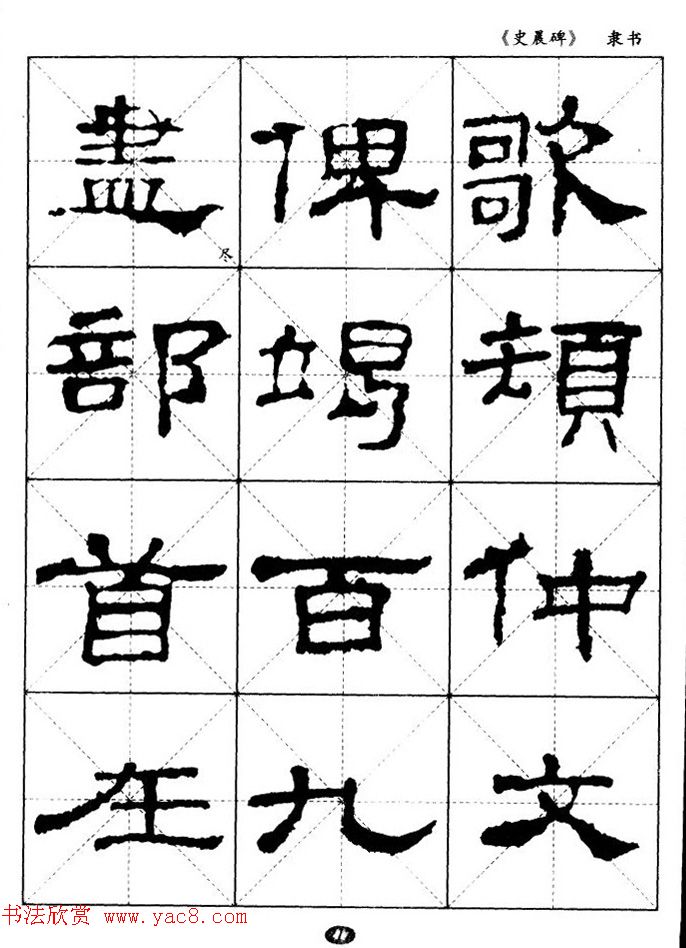 《史晨碑》 隶书
歌頓仲文
俾竭百九
盡部首在
尽
书法欣赏 www.yac8.com